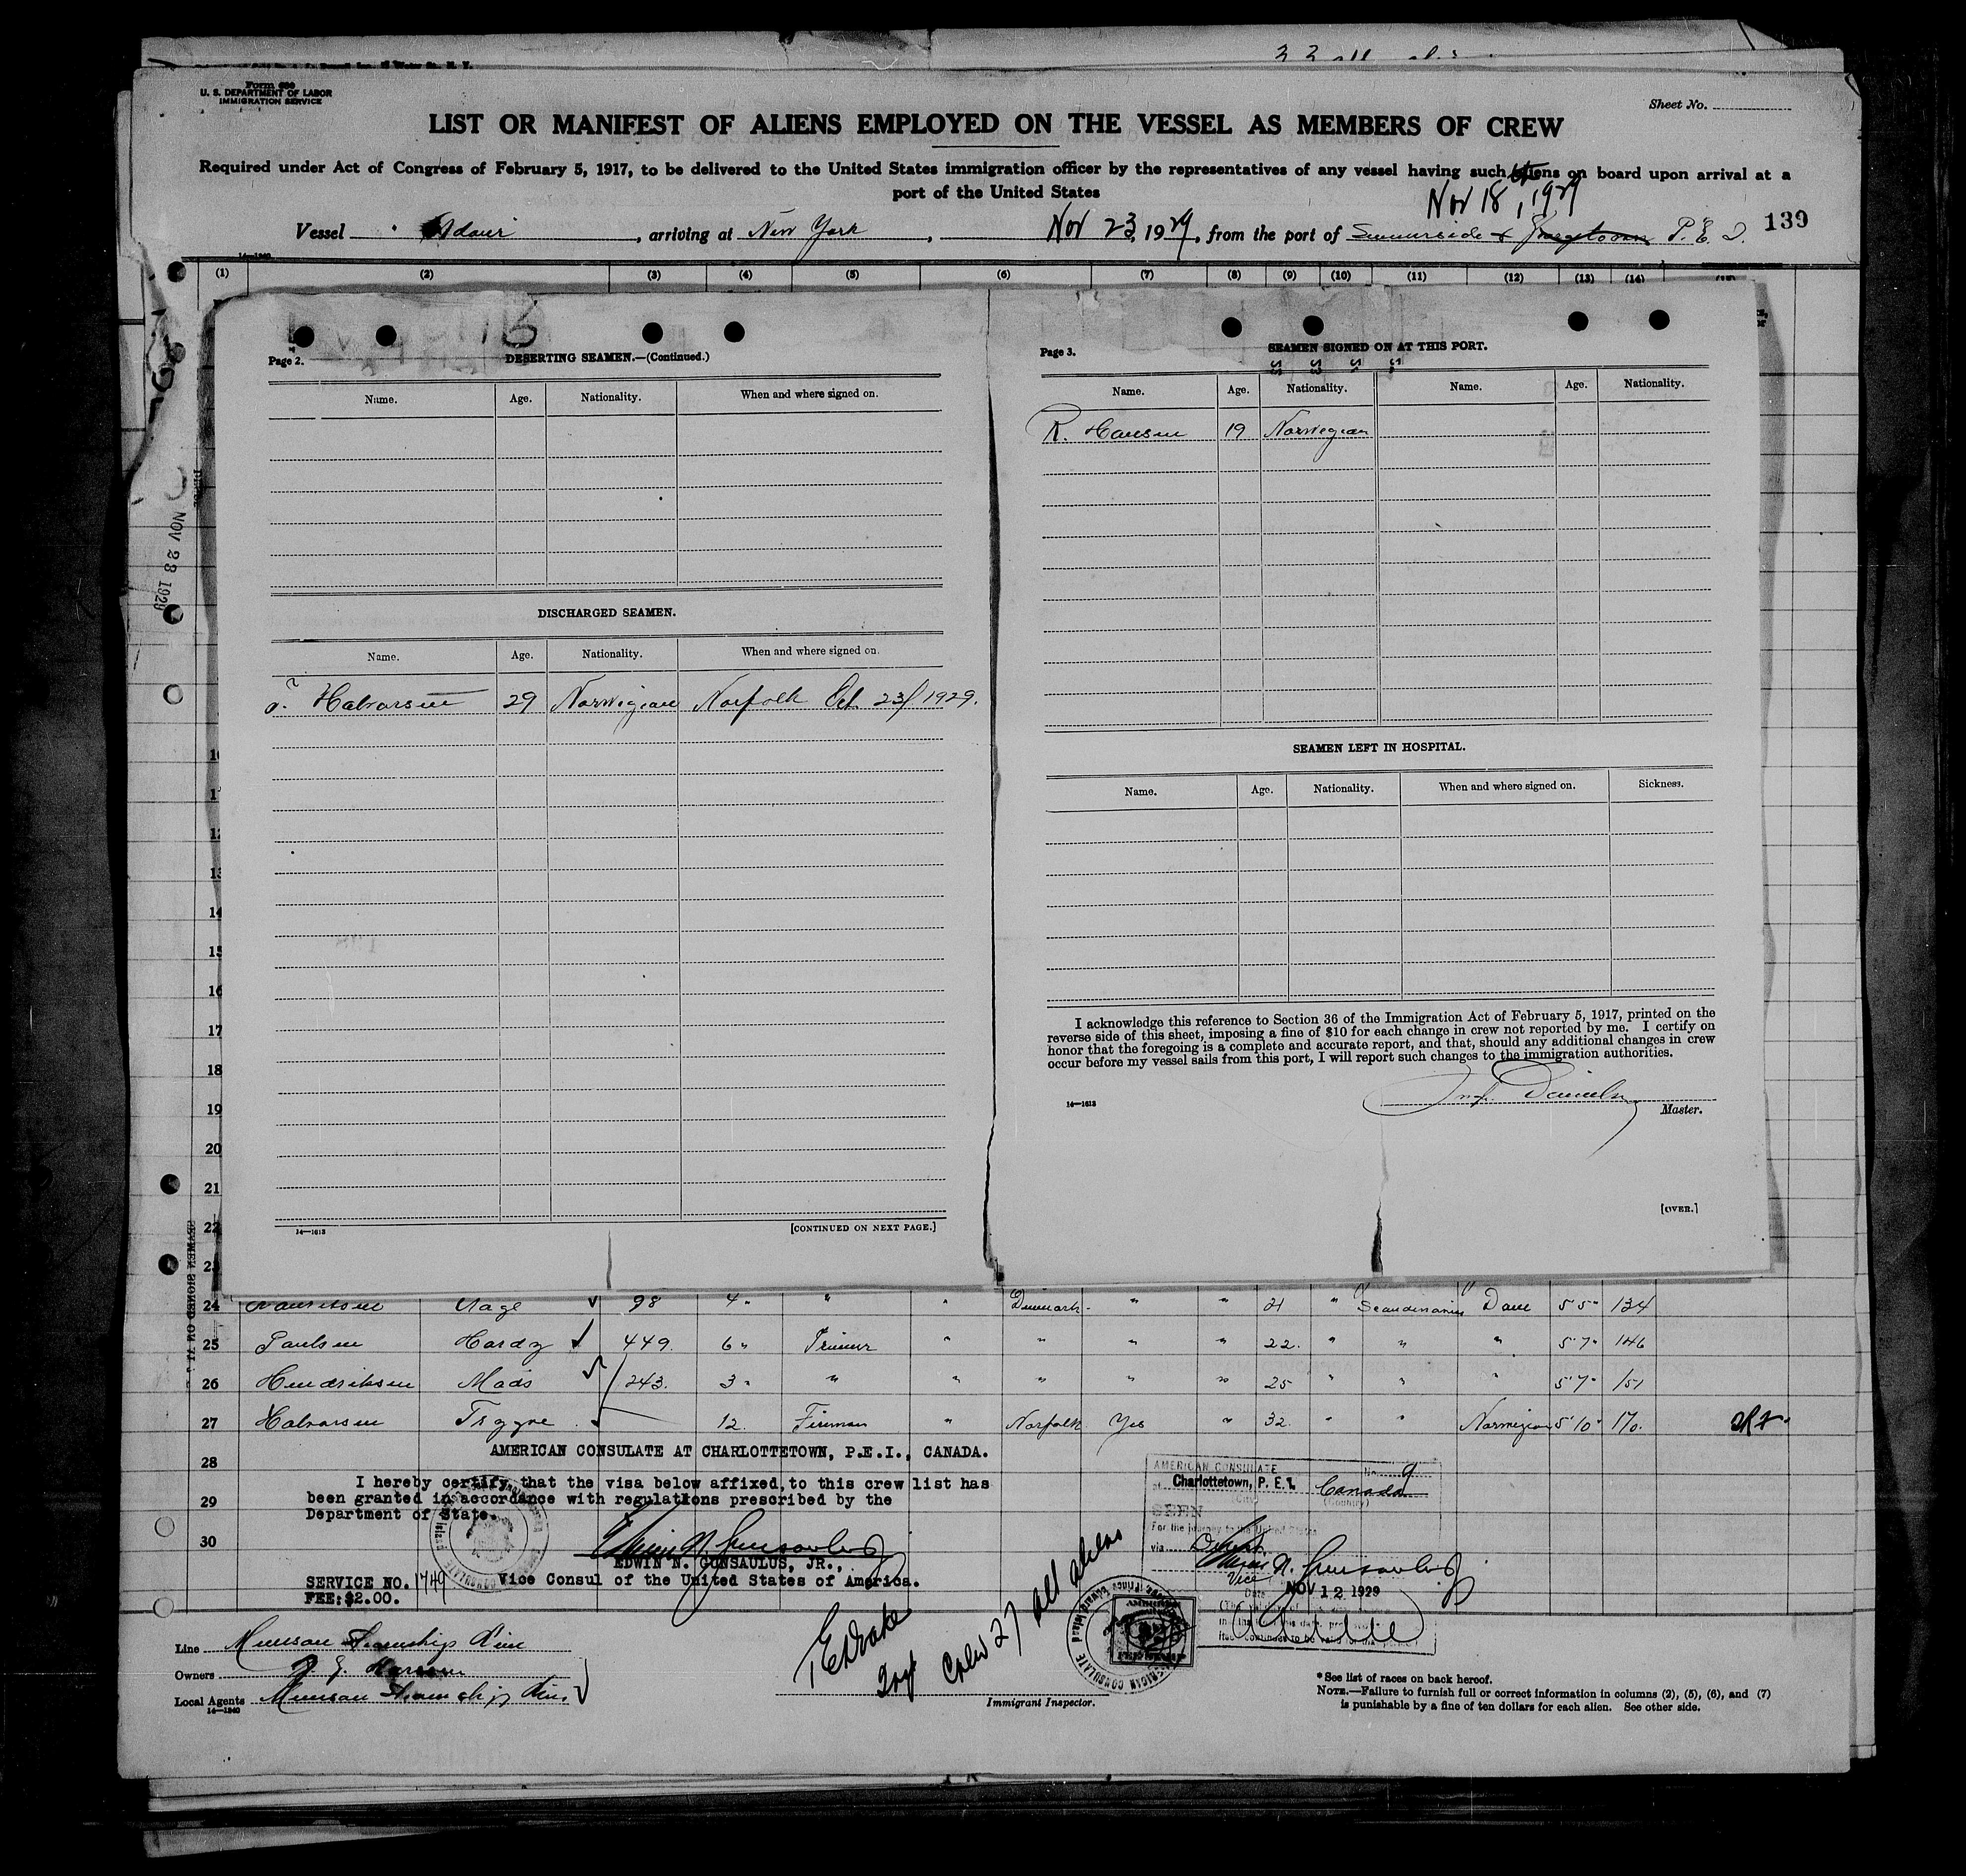 Form 689
U. S. DEPARTMENT OF LABOR
IMMIGRATION SERVICE
Sheet No.
LIST OR MANIFEST OF ALIENS EMPLOYED ON THE VESSEL AS MEMBERS OF CREW
Required under Act of Congress of February 5, 1917, to be delivered to the United States immigration officer by the representatives of any vessel having such aliens on board upon arrival at a
port of the United States
Nov 18, 1929
Vessel Adour, arriving at New York, Nov 23, 1929, from the port of Summerside & Georgetown P. E. I. 139
(1) (2) (3) (4) (5) (6) (7) (8) (9) (10) (11) (12) (13) (14)
Page 2.
DESERTING SEAMEN.—(Continued.)
Name. Age. Nationality. When and where signed on.
DISCHARGED SEAMEN.
Name. Age. Nationality. When and where signed on.
T. Halvorsen 29 Norwegian Norfolk Oct. 23/1929.
14—1613
[CONTINUED ON NEXT PAGE.]
Page 3.
SEAMEN SIGNED ON AT THIS PORT.
Name. Age. Nationality. Name. Age. Nationality.
R. Hansen 19 Norwegian
SEAMEN LEFT IN HOSPITAL.
Name. Age. Nationality. When and where signed on. Sickness.
I acknowledge this reference to Section 36 of the Immigration Act of February 5, 1917, printed on the
reverse side of this sheet, imposing a fine of $10 for each change in crew not reported by me. I certify on
honor that the foregoing is a complete and accurate report, and that, should any additional changes in crew
occur before my vessel sails from this port, I will report such changes to the immigration authorities.
14—1613
Master.
[OVER.]
NOV 23 1929
12
13
14
15
16
17
18
19
20
21
22
23
24 Aage 98 4 " " " Denmark " " 21 " Scandinavian Dane 5 5" 134
25 Paulsen Hardy 449. 6 " Trimmer " " " " 22. " " " 5'7" 146
26 Hendriksen Mads 243. 3 " " " " " " 25 " " " 5'7" 151
27 Halvorsen Trygve 12 Fireman " Norfolk Yes " 32. " " Norwegian 5'10" 170.
28
29
30
AMERICAN CONSULATE AT CHARLOTTETOWN, P.E.I., CANADA.
I hereby certify that the visa below affixed to this crew list has
been granted in accordance with regulations prescribed by the
Department of State.
EDWIN N. GUNSAULUS, JR.,
Vice Consul of the United States of America.
SERVICE NO. 1749
FEE: $2.00.
AMERICAN CONSULATE No. 9
Charlottetown, P. E. I. Canada
(City) (Country)
SEEN
For the journey to the United States
via Direct
Edwin N. Gunsaulus Jr
Vice
Date NOV 12 1929
Line Munson Steamship Line
Owners
Local Agents Munson Steamship Line
14—1240
Crew 27 all aliens
Immigrant Inspector.
*See list of races on back hereof.
NOTE.—Failure to furnish full or correct information in columns (2), (5), (6), and (7)
is punishable by a fine of ten dollars for each alien. See other side.